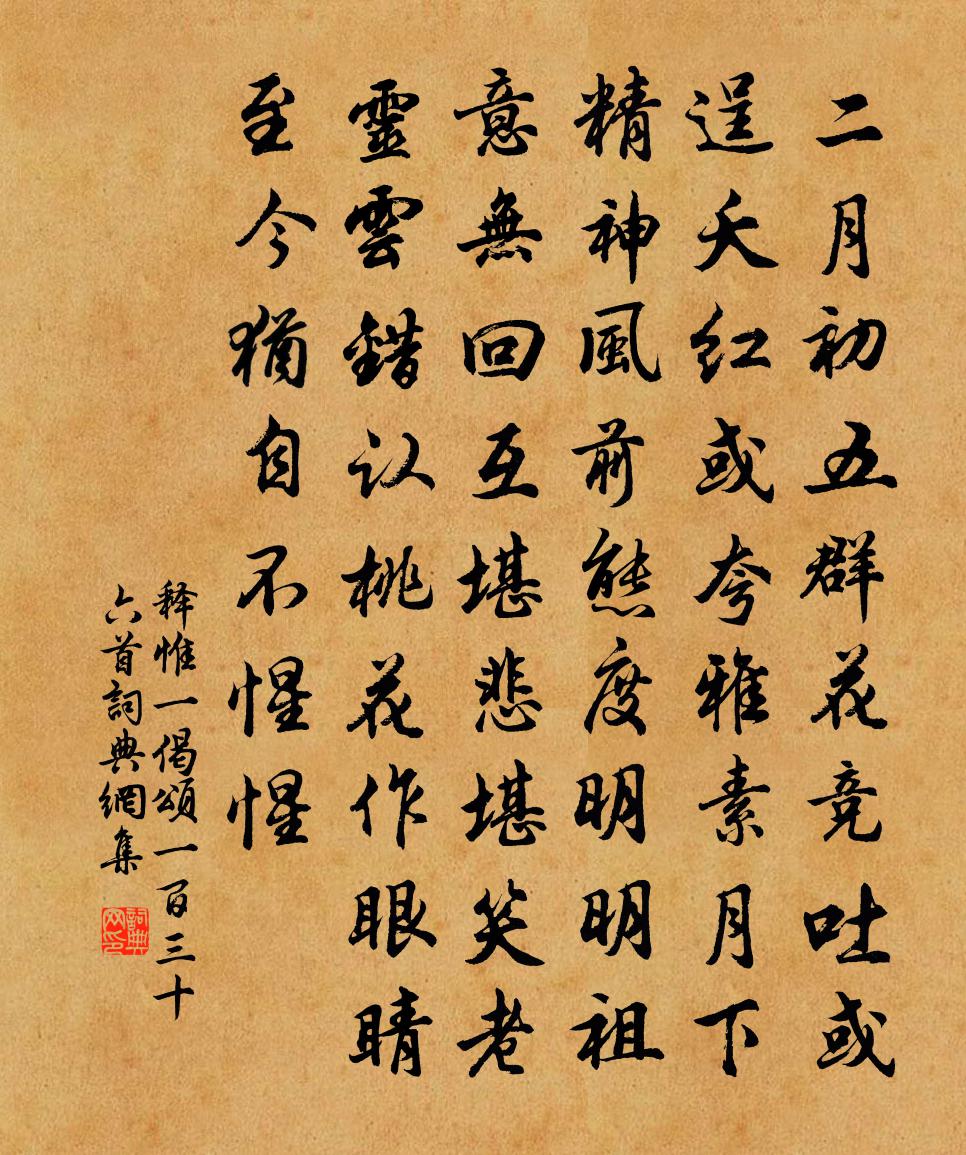 二月初五群花竞吐或
逞夭红或夸雅素月下
精神風前態度明明祖
意無回互堪悲堪笑老
靈雲錯认桃花作眼睛
至今猶自不惺惺
释惟一偈頌一百三十
六首詞典網集
詞典网印